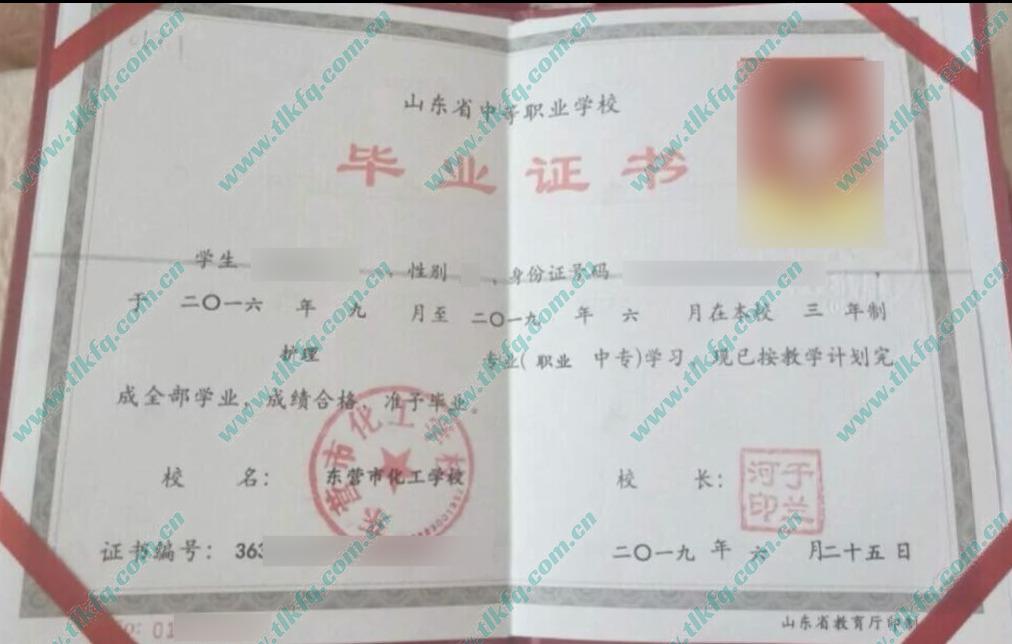 山东省中等职业学校
毕业证书
学生 ，性别 ，身份证号码 ，
于 二〇一六 年 九 月至 二〇一九 年 六 月在本校 三 年制
护理 专业( 职业 中专)学习，现已按教学计划完
成全部学业，成绩合格，准予毕业。
校 名： 东营市化工学校
东营市化工学校
校 长：
于兰河印
证书编号： 363
二〇一九 年 六 月二十五日
No: 01
山东省教育厅印制
www.tlkfq.com.cn